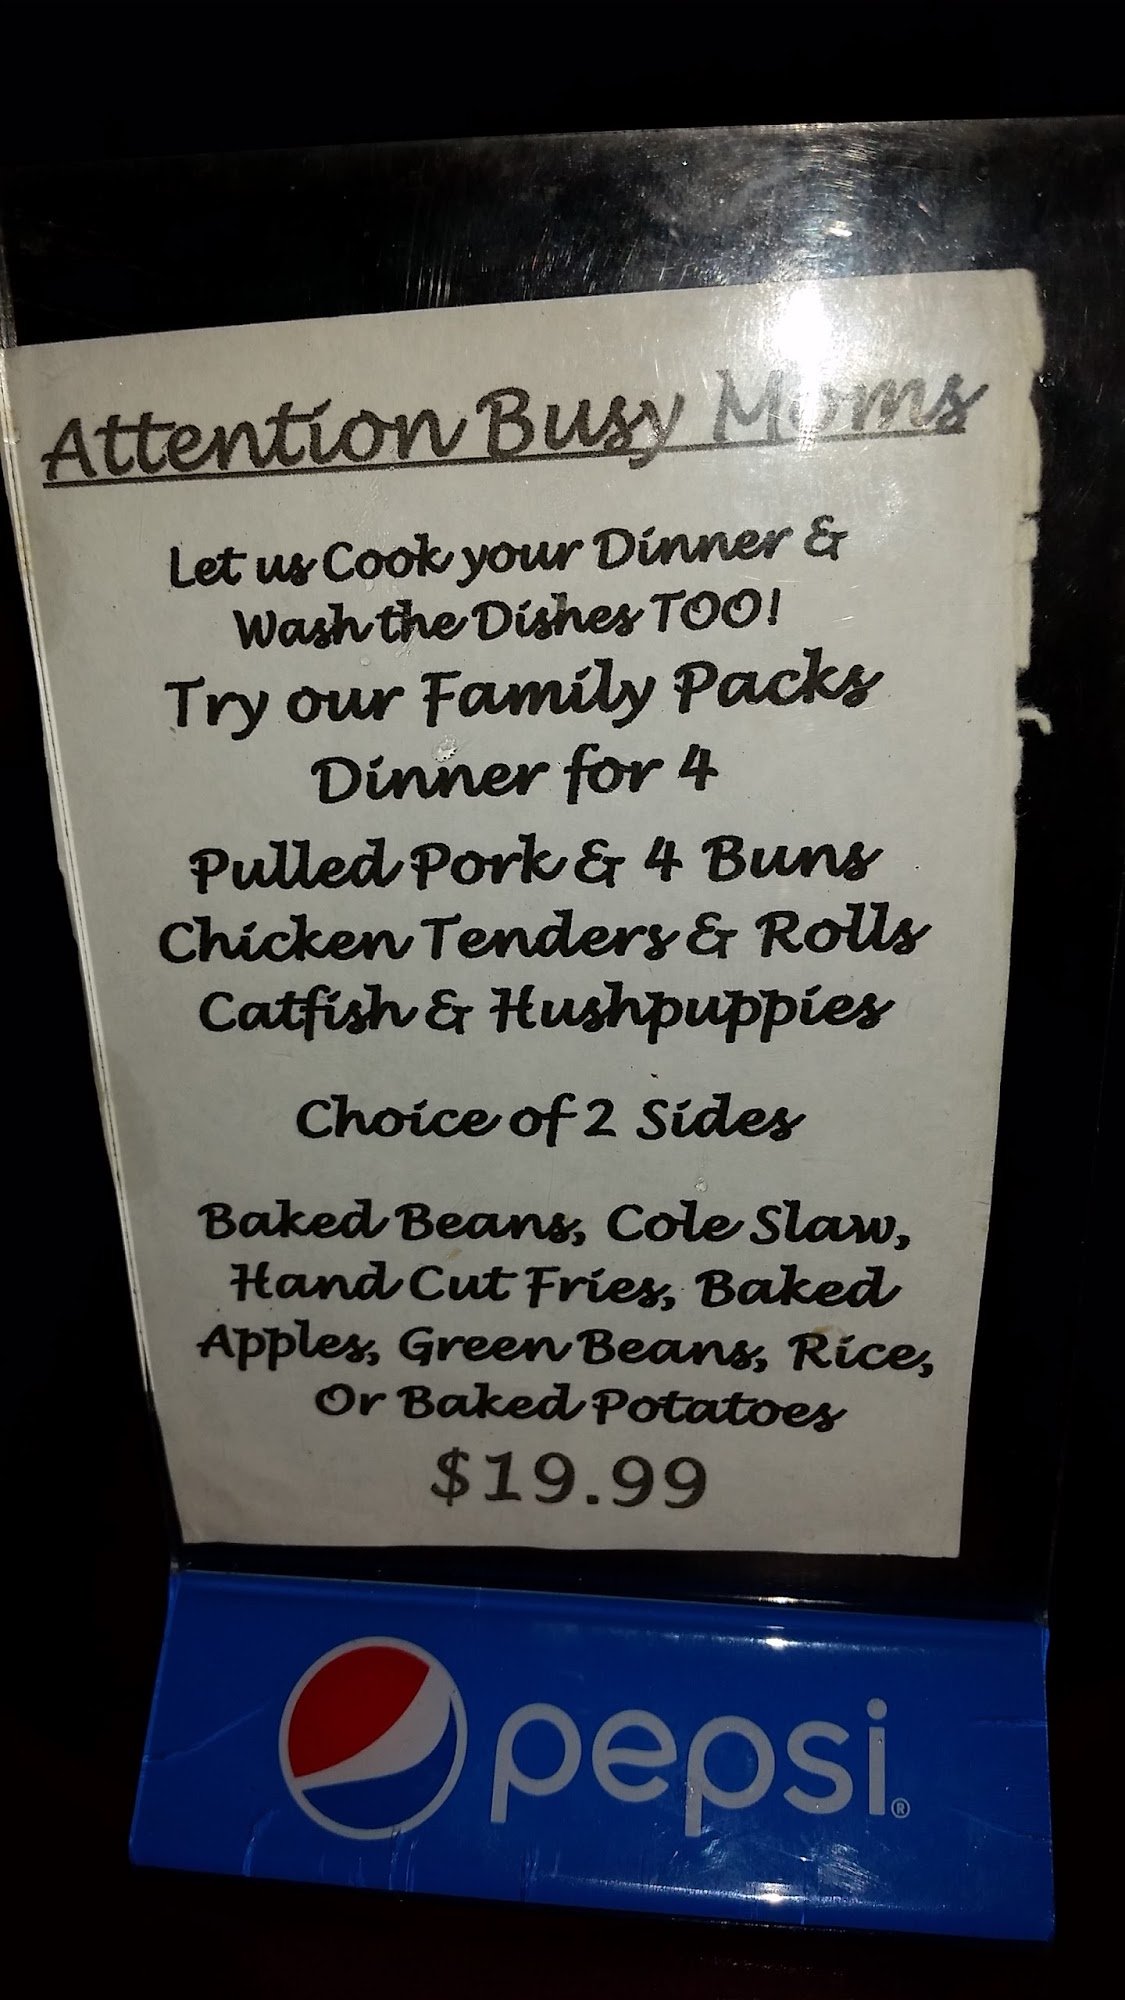 Attention Busy Moms
Let us Cook your Dinner &
Wash the Dishes TOO!
Try our Family Packs
Dinner for 4
Pulled Pork & 4 Buns
Chicken Tenders & Rolls
Catfish & Hushpuppies
Choice of 2 Sides
Baked Beans, Cole Slaw,
Hand Cut Fries, Baked
Apples, Green Beans, Rice,
Or Baked Potatoes
$19.99
pepsi®